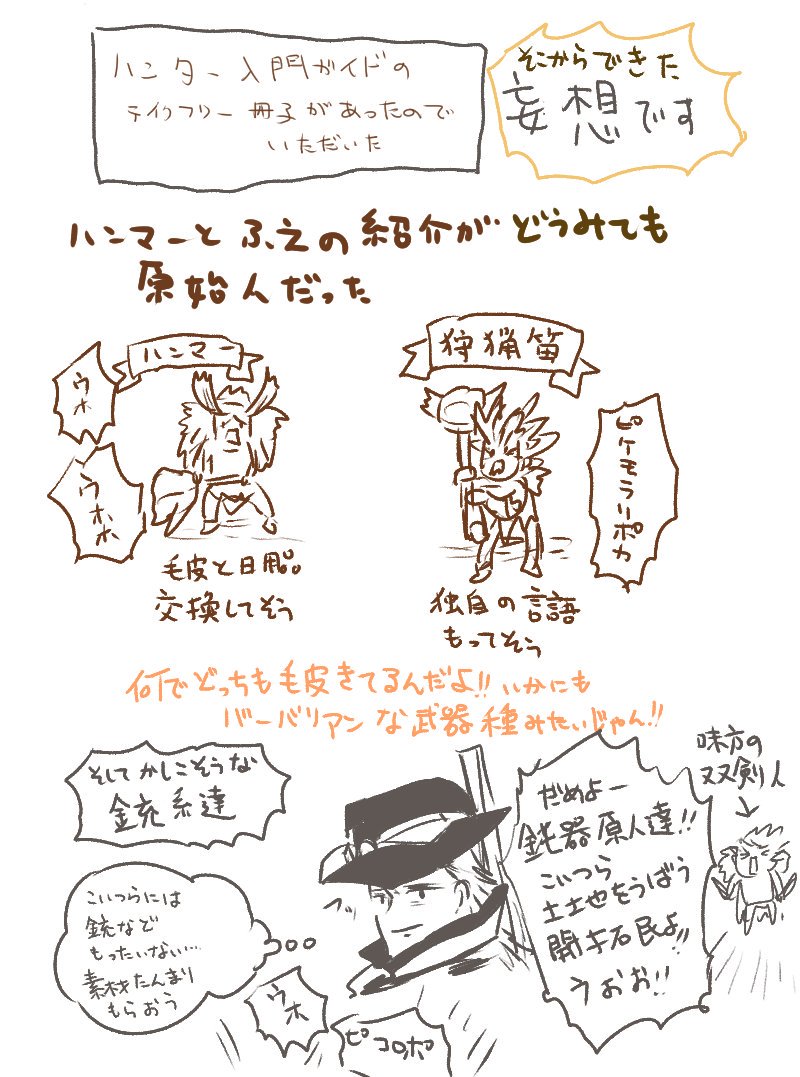 ハンター入門ガイドの
テイクフリー冊子があったので
いただいた
そこからできた
妄想です
ハンマーとふえの紹介がどうみても
原始人だった
ハンマー
ウホ
ウホホ
毛皮と日用品
交換してそう
狩猟笛
ピケモラリポカ
独自の言語
もってそう
何でどっちも毛皮きてるんだよ!!いかにも
バーバリアンな武器種みたいじゃん!!
そしてかしこそうな
銃系達
こいつらには
銃など
もったいない…
素材たんまり
もらおう
フッ
ウホ
ピコロポ
だめよー
鈍器原人達!!
こいつら
土地をうばう
開拓民よ!!
うおお!!
味方の
双剣人